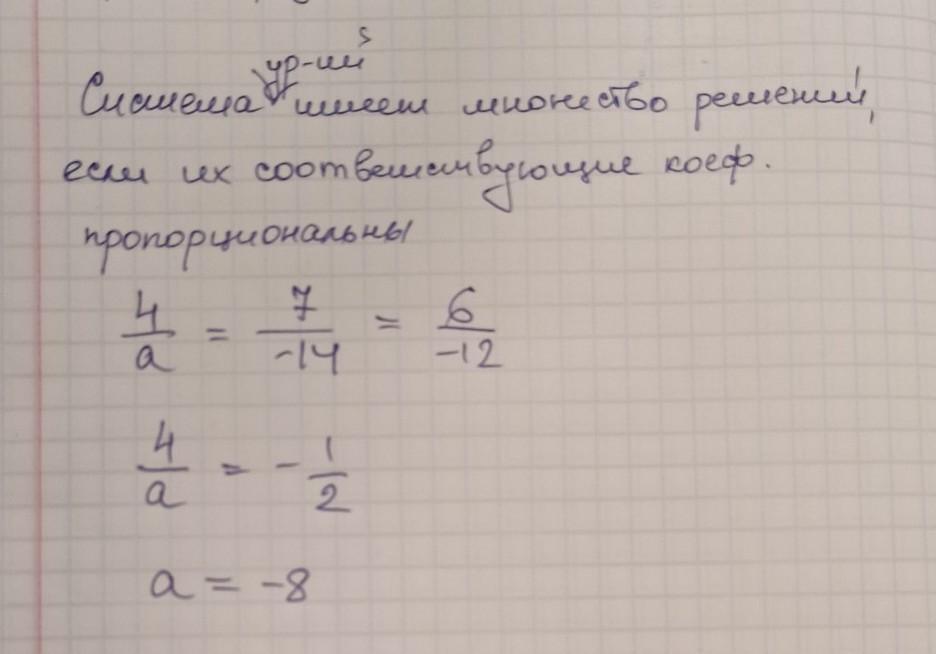 ур-ий
Система имеет множество решений,
если их соответствующие коеф.
пропорциональны
4/a = 7/-14 = 6/-12
4/a = -1/2
a = -8